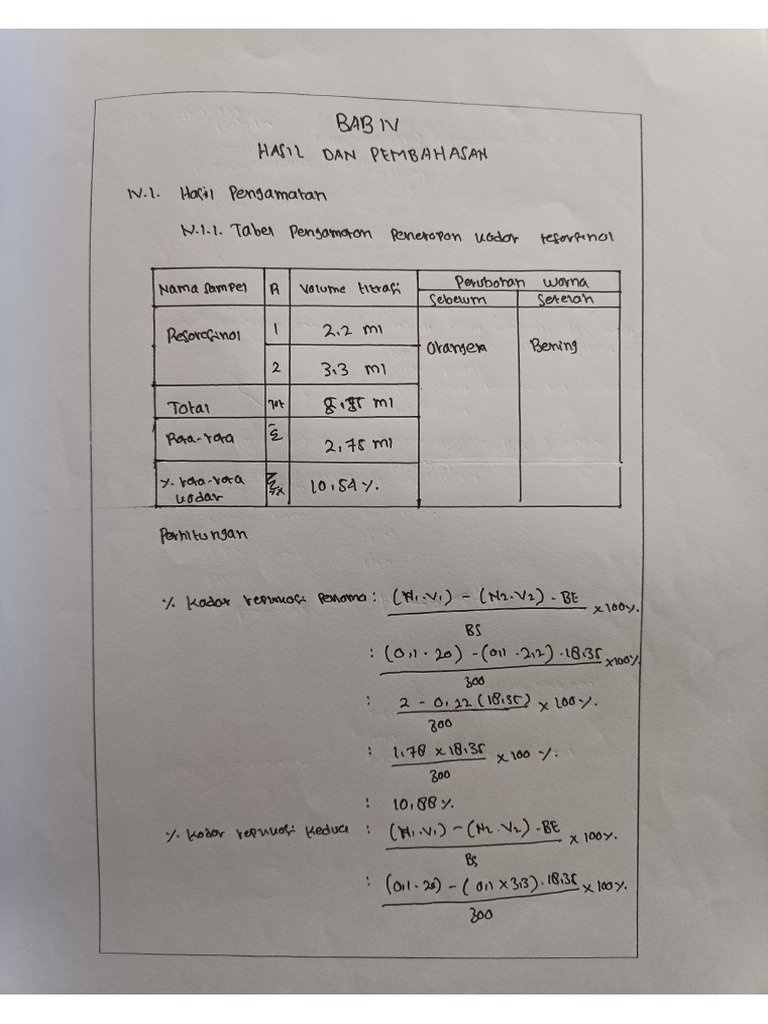 BAB IV
HASIL DAN PEMBAHASAN
IV.1. Hasil Pengamatan
IV.1.1. Tabel Pengamatan Penetapan kadar resorsinol
Nama sampel R Volume titrasi Perubahan warna
Sebelum Setelah
Resorsinol 1 2,2 ml Orangen Bening
2 3,3 ml
Total ml
Rata-rata 2,75 ml
% rata-rata kadar 10,54 %
Perhitungan
% Kadar replikasi pertama : (N1.V1) - (N2.V2) . BE x 100%.
BS
: (0,1 . 20) - (0,1 . 2,2) . 18,35 x 100%
300
: 2 - 0,22 (18,35) x 100%.
300
: 1,78 x 18,35 x 100 %.
300
: 10,88 %.
% Kadar replikasi kedua : (N1.V1) - (N2.V2) - BE x 100%.
BS
: (0,1 . 20) - (0,1 x 3,3) . 18,35 x 100%.
300